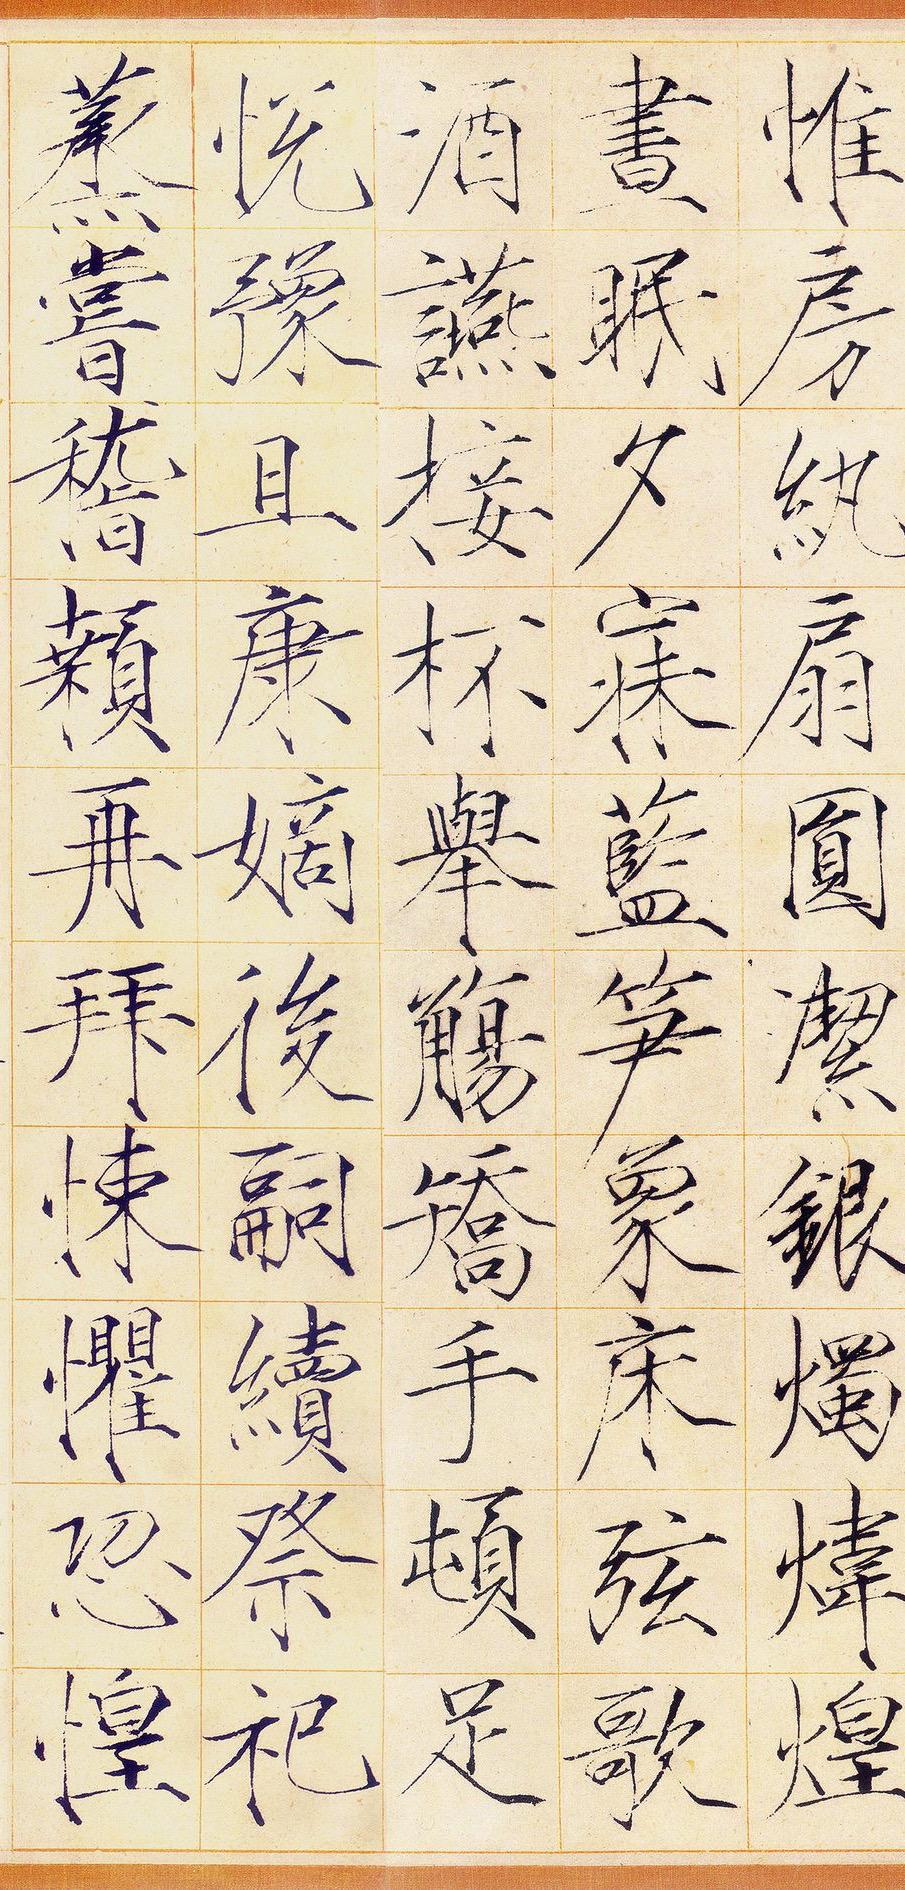 惟房紈扇圓潔銀燭煒煌
晝眠夕寐藍笋象床弦歌
酒讌接杯舉觴矯手頓足
悅豫且康嫡後嗣續祭祀
蒸嘗稽顙再拜悚懼恐惶